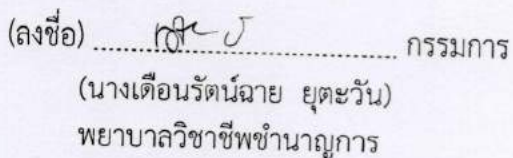 (ลงชื่อ) ........................................ กรรมการ
(นางเดือนรัตน์ฉาย ยุตะวัน)
พยาบาลวิชาชีพชำนาญการ